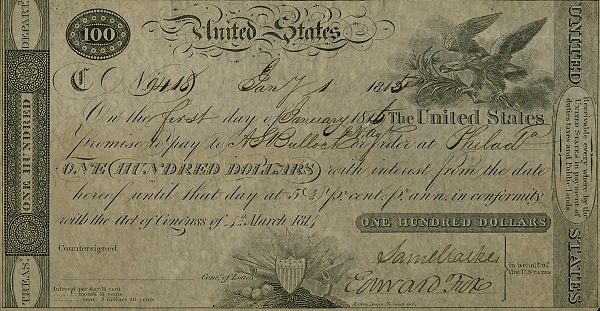 100
United States
C No 2418 Jany 1 1815
On the first day of January 1816 The United States
promise to pay to A S Bullock or order at Philada
ONE HUNDRED DOLLARS with interest from the date
hereof until that day at 5⅖ pr. cent. pr. ann. in conformity
with the Act of Congress of 4th March 1814
ONE HUNDRED DOLLARS
Countersigned
Comr. of Loans
Saml Clarke
Edward Fox
in behalf of
the U. STATES
Interest per day 1½ cent
month 45 cents
year 5 dollars 40 cents
TREAS.
ONE HUNDRED
DEPART.
UNITED
STATES
Receivable every where by the
UNITED STATES in payment of
duties taxes and public lands